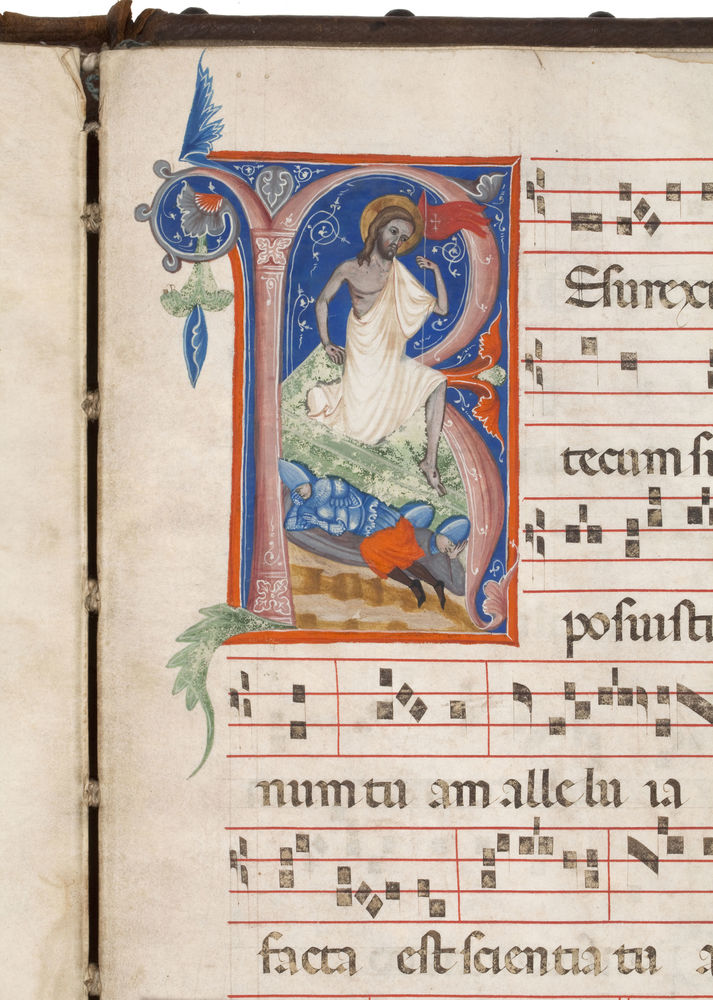 Resurexi
tecum si
posuisti
num tu am alle lu ia
facta est scientia tu a